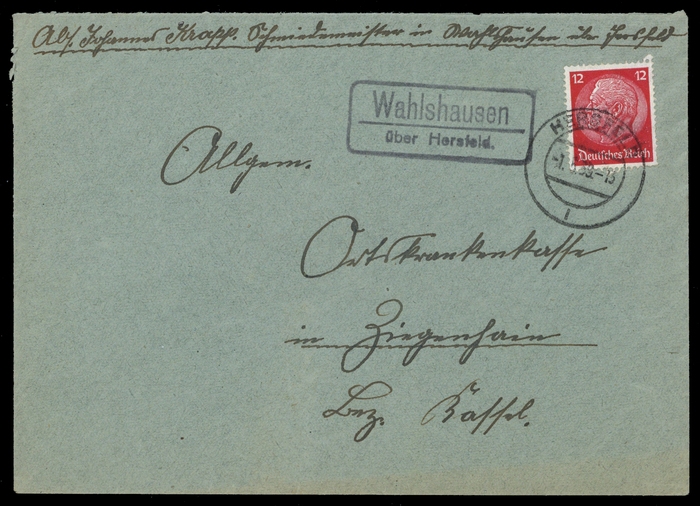 Abs. Johannes Krapp. Schmiedemeister in Wahlshausen über Hersfeld
12 12
Deutsches Reich
Wahlshausen
über Hersfeld.
HERSFELD
Allgem.
Ortskrankenkasse
in Ziegenhain
Bez. Kassel.